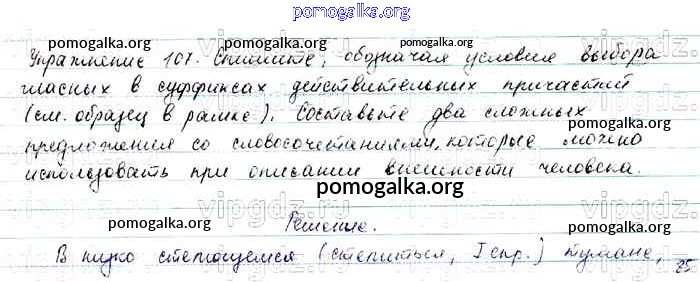 pomogalka.org
Упражнение 107. Спишите, обозначая условия выбора
гласных в суффиксах действительных причастий
(см. образец в рамке). Составьте два сложных
предложения со словосочетаниями, которые можно
использовать при описании внешности человека.
Решение.
В низко стелющемся (стелиться, I спр.) тумане,
25
pomogalka.org
pomogalka.org
pomogalka.org
pomogalka.org
pomogalka.org
pomogalka.org
pomogalka.org
pomogalka.org